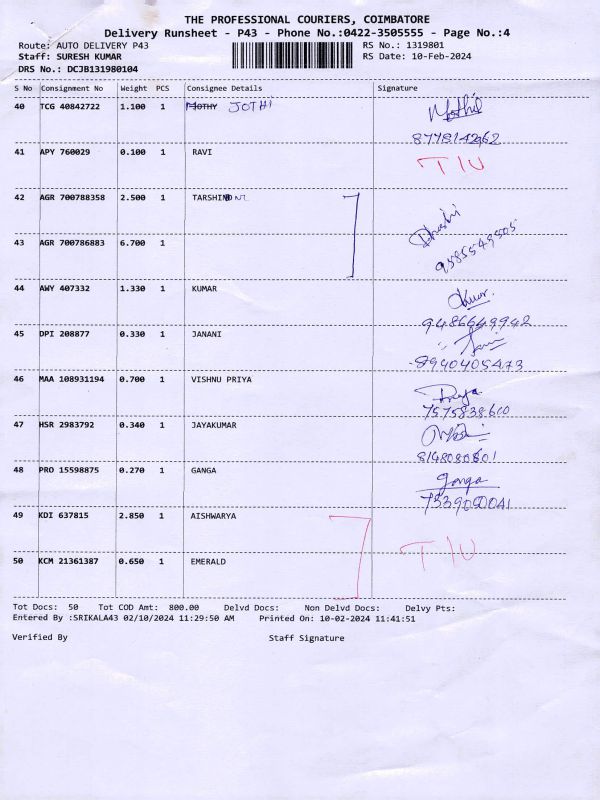 THE PROFESSIONAL COURIERS, COIMBATORE
Delivery Runsheet - P43 - Phone No.:0422-3505555 - Page No.:4
Route: AUTO DELIVERY P43 RS No.: 1319801
Staff: SURESH KUMAR RS Date: 10-Feb-2024
DRS No.: DCJB131980104
S No Consignment No Weight PCS Consignee Details Signature
40 TCG 40842722 1.100 1 MOTHY JOTHI
8778142962
41 APY 760029 0.100 1 RAVI T/U
42 AGR 700788358 2.500 1
43 AGR 700786883 6.700 1 9585549505
44 AWY 407332 1.330 1 KUMAR
9486649942
45 DPI 208877 0.330 1 JANANI
8940405473
46 MAA 108931194 0.700 1 VISHNU PRIYA
7575838610
47 HSR 2983792 0.340 1 JAYAKUMAR
48 PRO 15598875 0.270 1 GANGA Ganga
49 KDI 637815 2.850 1 AISHWARYA T/U
50 KCM 21361387 0.650 1 EMERALD
Tot Docs: 50 Tot COD Amt: 800.00 Delvd Docs: Non Delvd Docs: Delvy Pts:
Entered By :SRIKALA43 02/10/2024 11:29:50 AM Printed On: 10-02-2024 11:41:51
Verified By Staff Signature